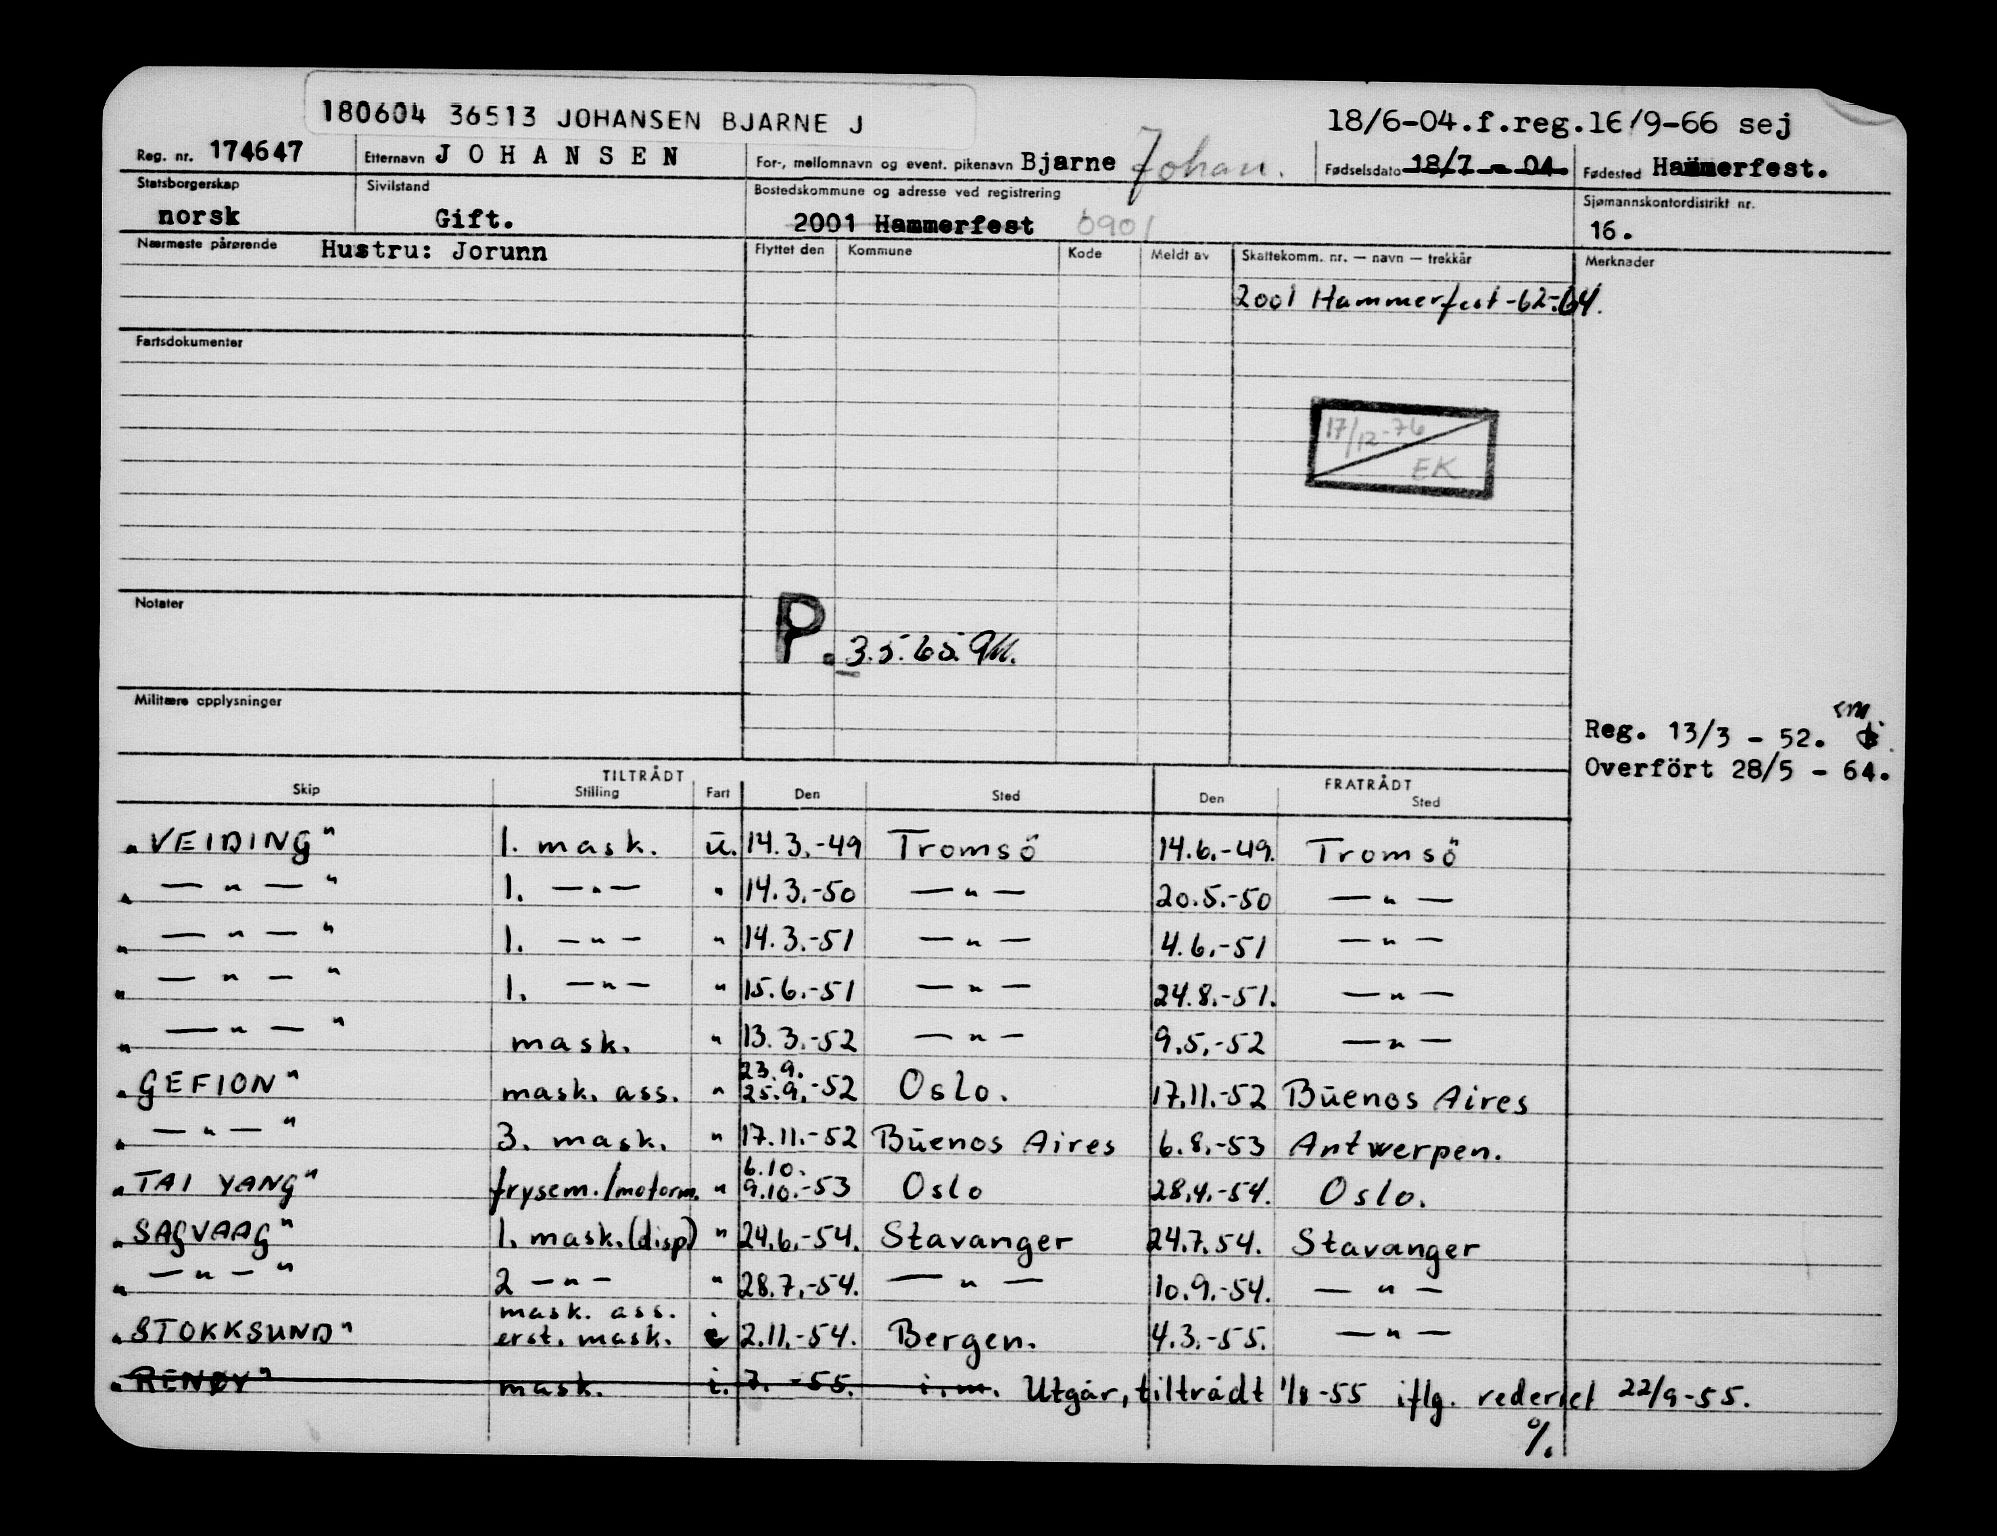 180604 36513 JOHANSEN BJARNE J
18/6-04.f.reg.16/9-66 sej
Reg. nr. 174647 Etternavn JOHANSEN For-, mellomnavn og event. pikenavn Bjarne Johan. Fødselsdato 18/7 - 04. Fødested Hammerfest.
Statsborgerskap Sivilstand Bostedskommune og adresse ved registrering Sjømannskontordistrikt nr.
norsk Gift. 2001 Hammerfest 0901 16.
Nærmeste pårørende Hustru: Jorunn Flyttet den Kommune Kode Meldt av Skattekomm. nr. — navn — trekkår Merknader
2001 Hammerfest -62-64.
Fartsdokumenter
17/12-76
EK
Notater
P. 3.5.65.
Militære opplysninger
Reg. 13/3 - 52.
Overfört 28/5 - 64.
TILTRÅDT FRATRÅDT
Skip Stilling Fart Den Sted Den Sted
"VEIDING" 1. mask. u. 14.3.-49 Tromsö 14.6.-49. Tromsö
" — " — " 1. — " — " 14.3.-50 — " — 20.5.-50 — " —
" — " — " 1. — " — " 14.3.-51 — " — 4.6.-51 — " —
" — " — " 1. — " — " 15.6.-51 — " — 24.8.-51. — " —
" — " — " mask. " 13.3.-52 — " — 9.5.-52 — " —
23.9.
"GEFION" mask. ass. " 25.9.-52 Oslo. 17.11.-52 Buenos Aires
" — " — " 3. mask. " 17.11.-52 Buenos Aires 6.8.-53 Antwerpen.
6.10.
"TAI YANG" frysem./motorm. " 9.10.-53 Oslo 28.4.-54. Oslo.
"SAGVAAG" 1. mask.(disp) " 24.6.-54. Stavanger 24.7.54. Stavanger
" — " — " 2 — " — " 28.7.-54. — " — 10.9.-54. — " —
mask. ass. i
"STOKKSUND" erst. mask. 2.11.-54. Bergen. 4.3.-55. — " —
"RENØY" mask. i. 7. -55. i.m. Utgår, tiltrådt 1/8-55 iflg. rederiet 22/9-55.
%.